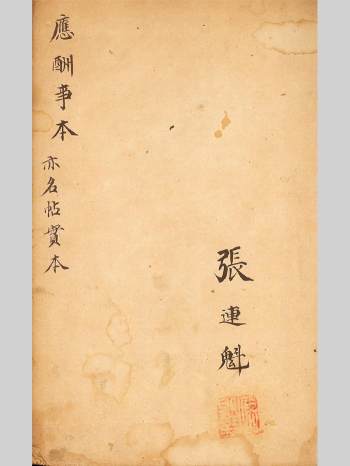 應酬事本
亦名帖實本
張連魁